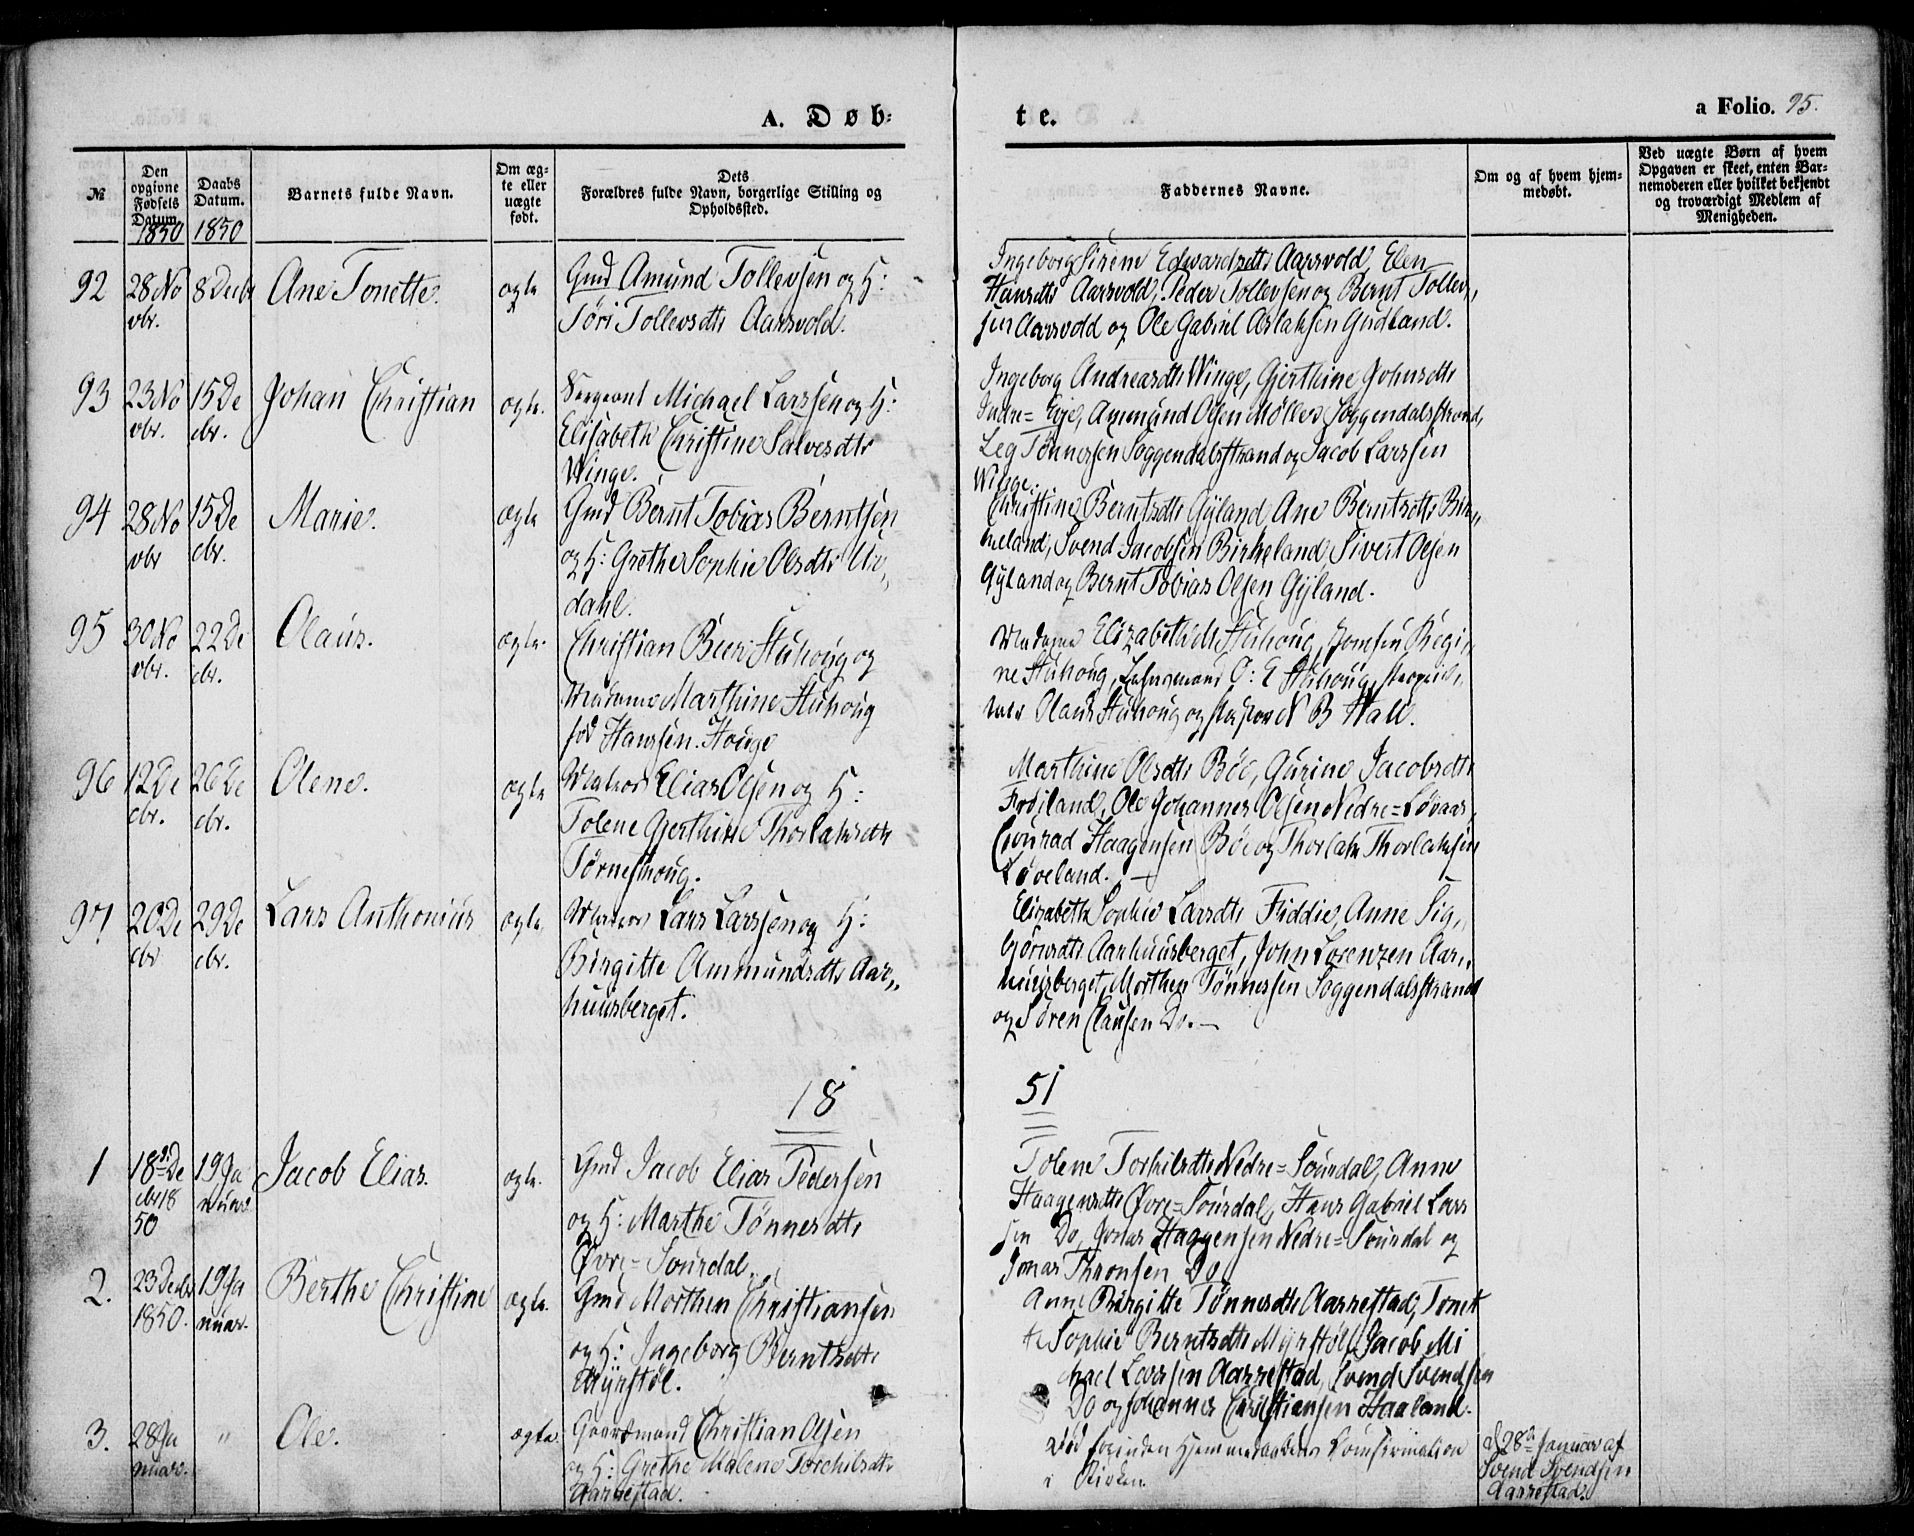 A. Døb-
te.
a Folio. 95.
№
Den opgivne Fødsels Datum. 1850
Daabs Datum. 1850
Barnets fulde Navn.
Om ægte eller uægte født.
Dets Forældres fulde Navn, borgerlige Stilling og Opholdssted.
Faddernes Navne.
Om og af hvem hjemmedøbt.
Ved uægte Børn af hvem Opgaven er skeet, enten Barnemoderen eller hvilket bekjendt og troværdigt Medlem af Menigheden.
92
28 No
vbr.
8 Decbr
Ane Tonette.
ægte
Gmd Amund Tollevsen og H:
Töri Tollevsdtr Aarsvold.
Ingeborg Sirene Edwardsdtr Aarsvold, Elen
Hansdtr Aarsvold, Peder Tollevsen og Bernt Tollev„
sen Aarsvold og Ole Gabriel Aslaksen Gudland.
93
23 No
vbr.
15 De
cbr.
Johan Christian
ægte.
Sergeant Michael Larssen og H:
Elisabeth Christine Salvesdtr
Winge.
Ingeborg Andreasdtr Winge, Gjerthine Johnsdtr
Indre=Eye, Ammund Olsen Møller Soggendalsstrand,
Leg Tønnessen Soggendalsstrand og Jacob Larssen
Winge.
94
28 No
vbr
15 De
cbr.
Marie.
ægte
Gmd Bernt Tobias Berntsen
og H: Grethe Sophie Olsdtr Ue„
dahl.
Christine Berntsdtr Gyland, Ane Berntsdtr Bir„
keland, Svend Jacobsen Birkeland, Sivert Olsen
Gyland og Bernt Tobias Olsen Gyland.
95
30 No
vbr.
22 De
cbr.
Olaus.
ægte.
Christian Beer Stuhoug og
Madame Marthine Stuhoug
fød Hanssen. Houge
Madame Elizabeth Stuhoug, Jomfru Regi„
ne Stuhoug, Lehnsmand O: E Stuhoug,
Olaus Stuhoug og N B Hall.
96
12 De
cbr.
26 De
cbr.
Olene.
ægte
Elias Olsen og H:
Tolene Gjerthine Thorlaksdtr
Tørneshoug.
Marthine Olsdtr Böe, Gurine Jacobsdtr
Frøiland, Ole Johannes Olsen Nedre=Løvaas,
Conrad Haagensen Böe og Thorlak Thorlaksen
Løveland. —
97
20 De
cbr
29 De
cbr.
Lars Anthonius
ægte.
Lars Larssen og H:
Birgitte Ammundsdtr Aar„
huusberget.
Elizabeth Sophie Larsdtr Fiddie, Anne Sig„
björnsdtr Aarhuusberget, John Lorenzen Aar„
huusberget, Morthen Tönnessen Soggendalsstrand
og Sören Clausen Do. —
18
51
1
18de De
cbr 18
50
19 Ja
nuar
Jacob Elias.
ægte.
Gmd Jacob Elias Pedersen
og H: Marthe Tönnesdtr
Øvre=Sourdal.
Tolene Torkilsdtr Nedre=Sourdal, Anne
Haagensdtr Øvre=Sourdal, Hans Gabriel Lars
sen Do, Jonas Haagensen Nedre=Sourdal og
Jonas Thronsen Do
2.
23 Decbr
1850.
19 Ja
nuar.
Berthe Christine
ægte.
Gmd Morthen Christiansen
og H: Ingeborg Berntsdtr
Myrstøl.
Anne Birgitte Tönnesdtr Aarrestad, Tonet
te Sophie Berntsdtr Myrstøl, Jacob Mi
chael Larssen Aarrestad, Svend Svendsen
Do og Johannes Christiansen Haaland.
3.
28 Ja
nuar.
"
Ole.
ægte.
Gaardmand Christian Olsen
og H: Grethe Malene Torchilsdtr
Aarrestad.
Død forinden Hjemmedaabens Confirmation
i Kirken.
d 28de Januar af
Svend Svendsen
Aarrestad.